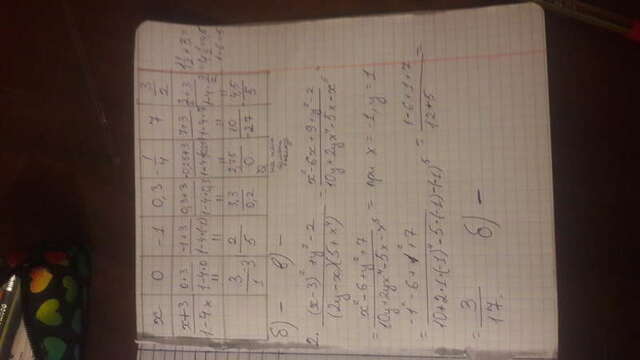 x 0 -1 0,3 -1/4 7 3/2
x+3 / 1-4x 0+3 / 1-4·0 -1+3 / 1-4·(-1) 0,3+3 / 1-4·0,3 7+3 / 1-4·7 3/2+3 / 1-4·3/2
3/1=3 2/5 3,3/0,2 2,75/0 10/-27 4,5/5
б) - в) -
2. (x-3)²+y²-2 / (2y-x)(5+x⁴) = x²-6x+9+y²-2 / 10y+2yx⁴-5x-x⁵ =
= x²-6+y²+7 / 10y+2yx⁴-5x-x⁵ = при x=-1, y=1
= -1²-6+1²+7 / 10+2·1·(-1)⁴-5·(-1)-(-1)⁵ = 1-6+1+7 / 12+5 =
= 3/17. б) -